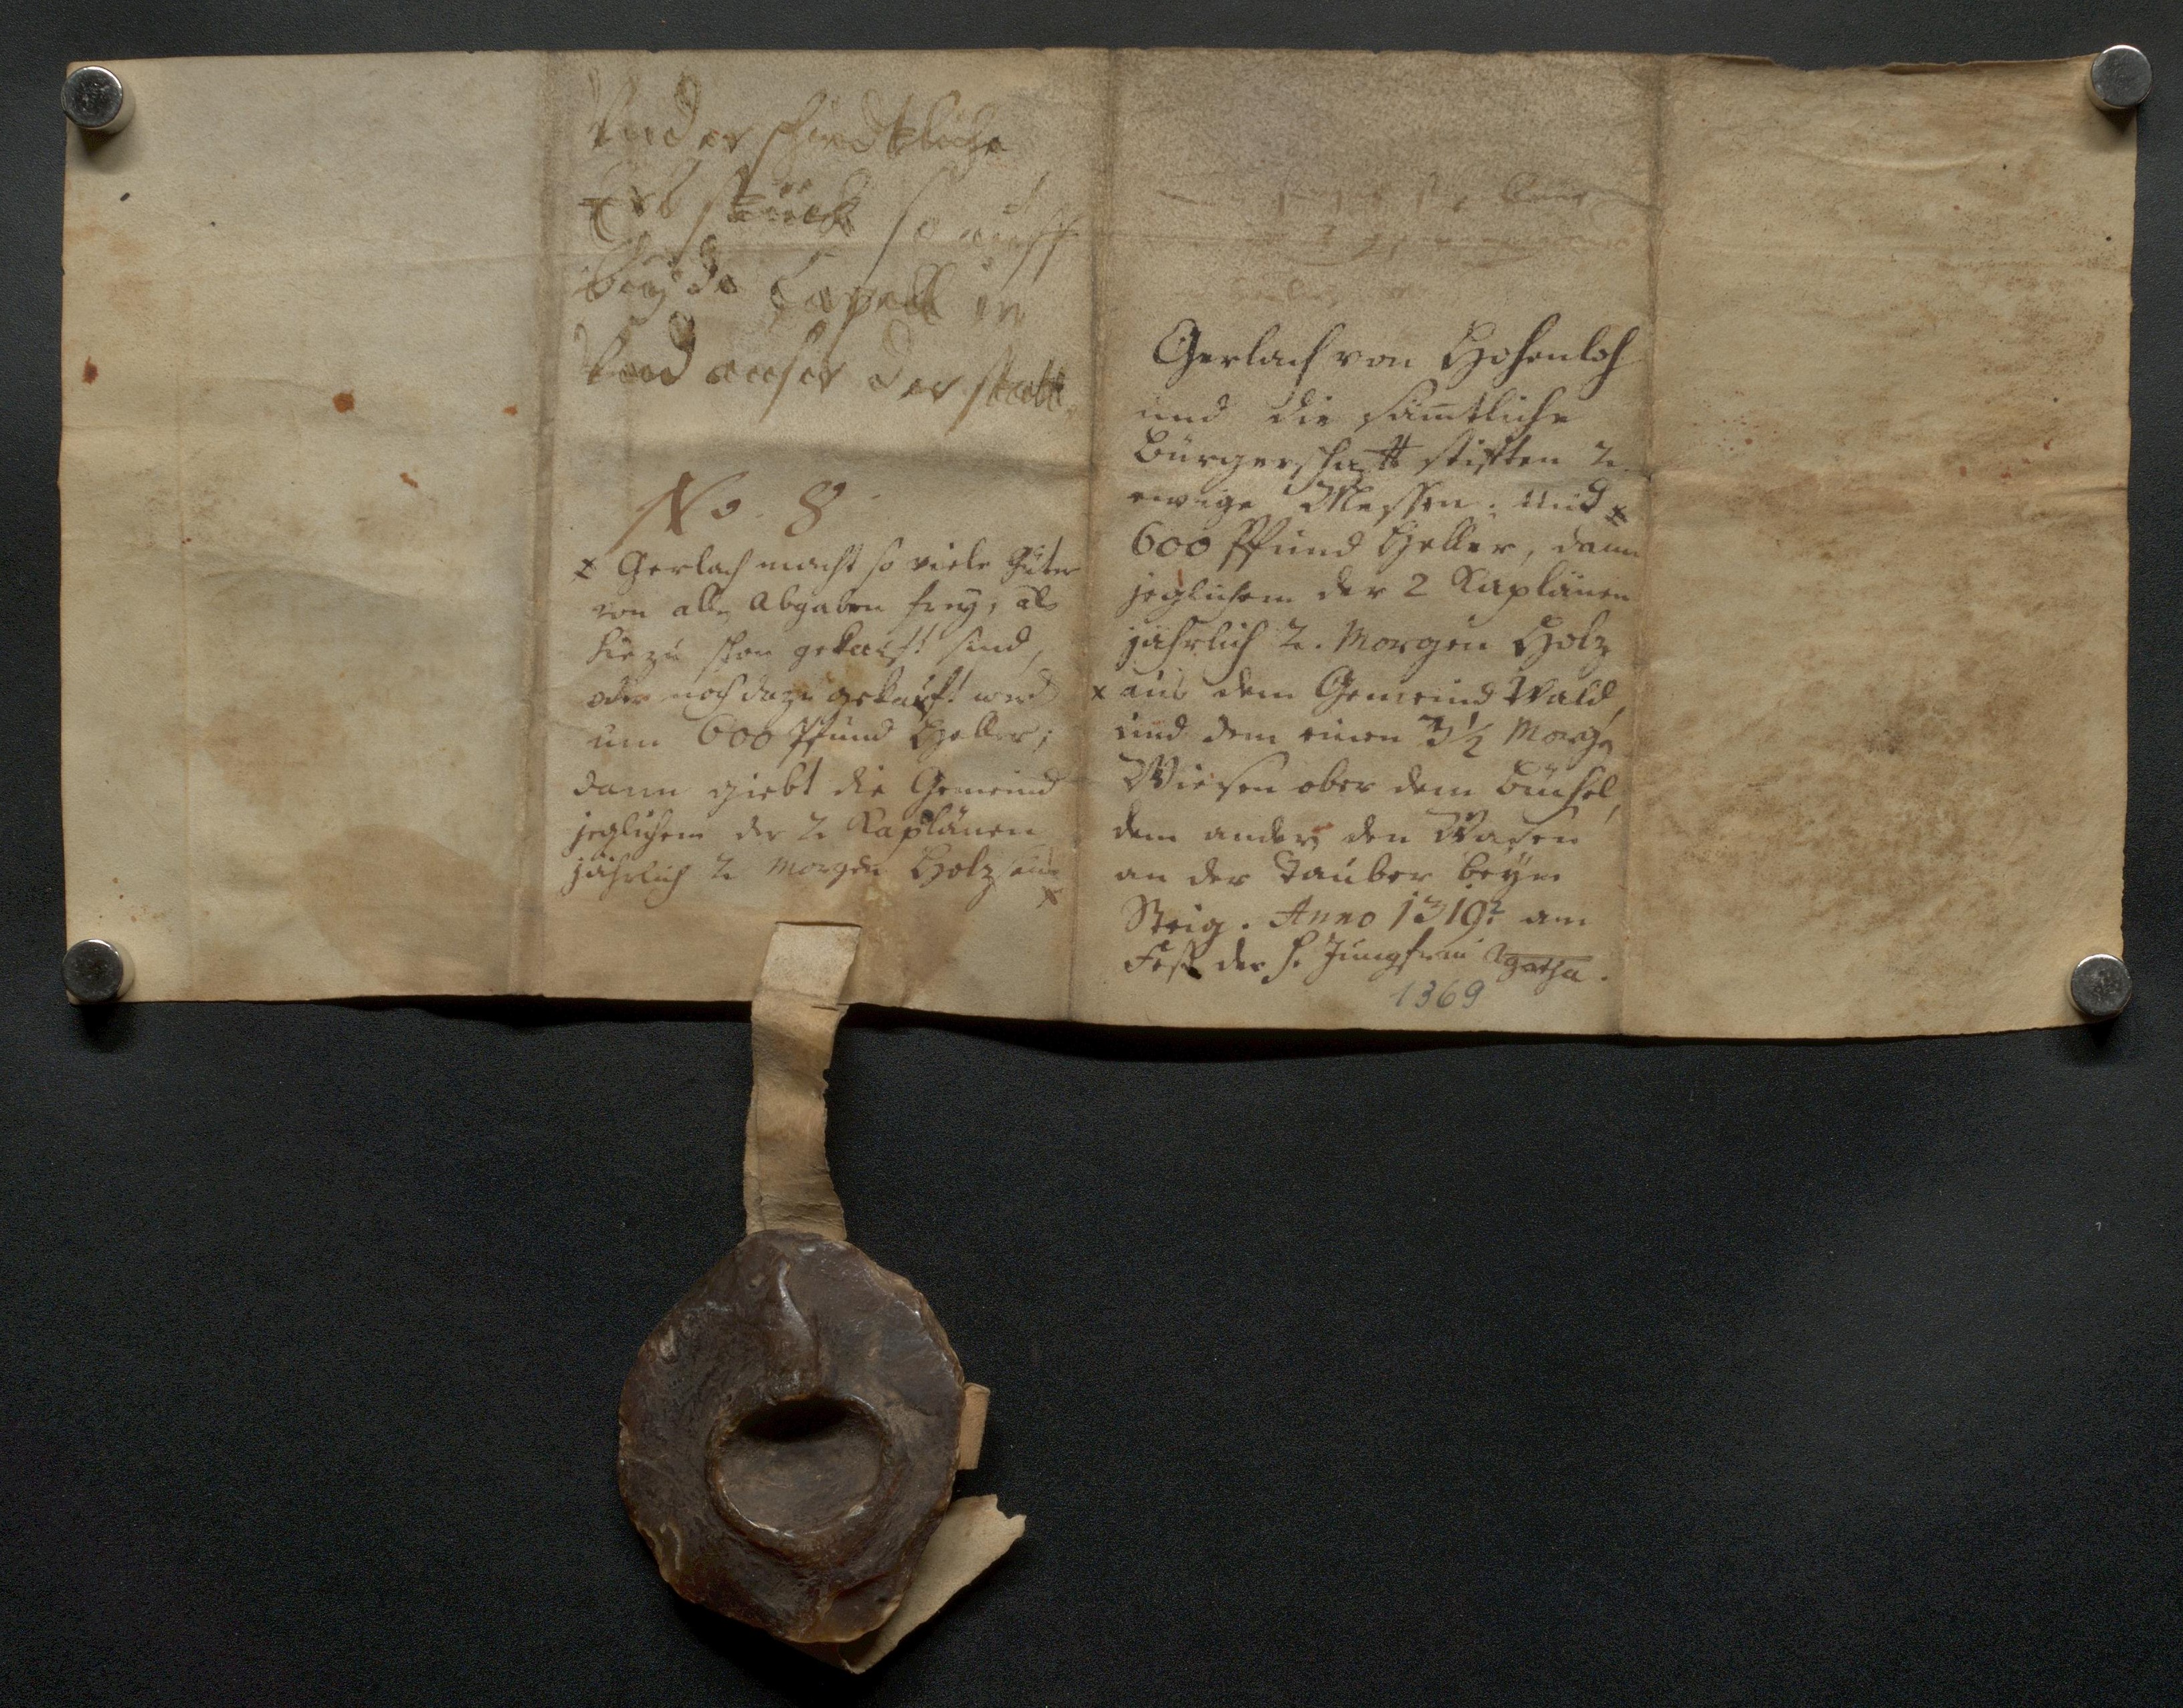 Underschiedtliche
Erbstück so auff
beyde Capell in
Und auser der statt.
No. 8
x Gerlach macht so viele Güter
von alle Abgaben frey, als
hiezu schon gekauft sind,
oder noch dazu gekauft werd
um 600 Pfund Heller;
dann giebt die Gemeind
jeglichem der 2 Kaplänen
jährlich 2 Morgen Holz aus
x
Gerlach von Hohenloh
und die sämtliche
Bürgerschafft stiften 2
ewige Messen: mit x
600 Pfund Heller, dann
jeglichem der 2 Kaplänen
jährlich 2. Morgen Holz
x aus dem Gemeind Wald,
und dem einen 3 1/2 Morge
Wiesen ober dem Büchel,
dem ander den Wasen
an der Tauber beym
Steig. Anno 1319? am
Fest der h. Jungfrau Agatha.
1369